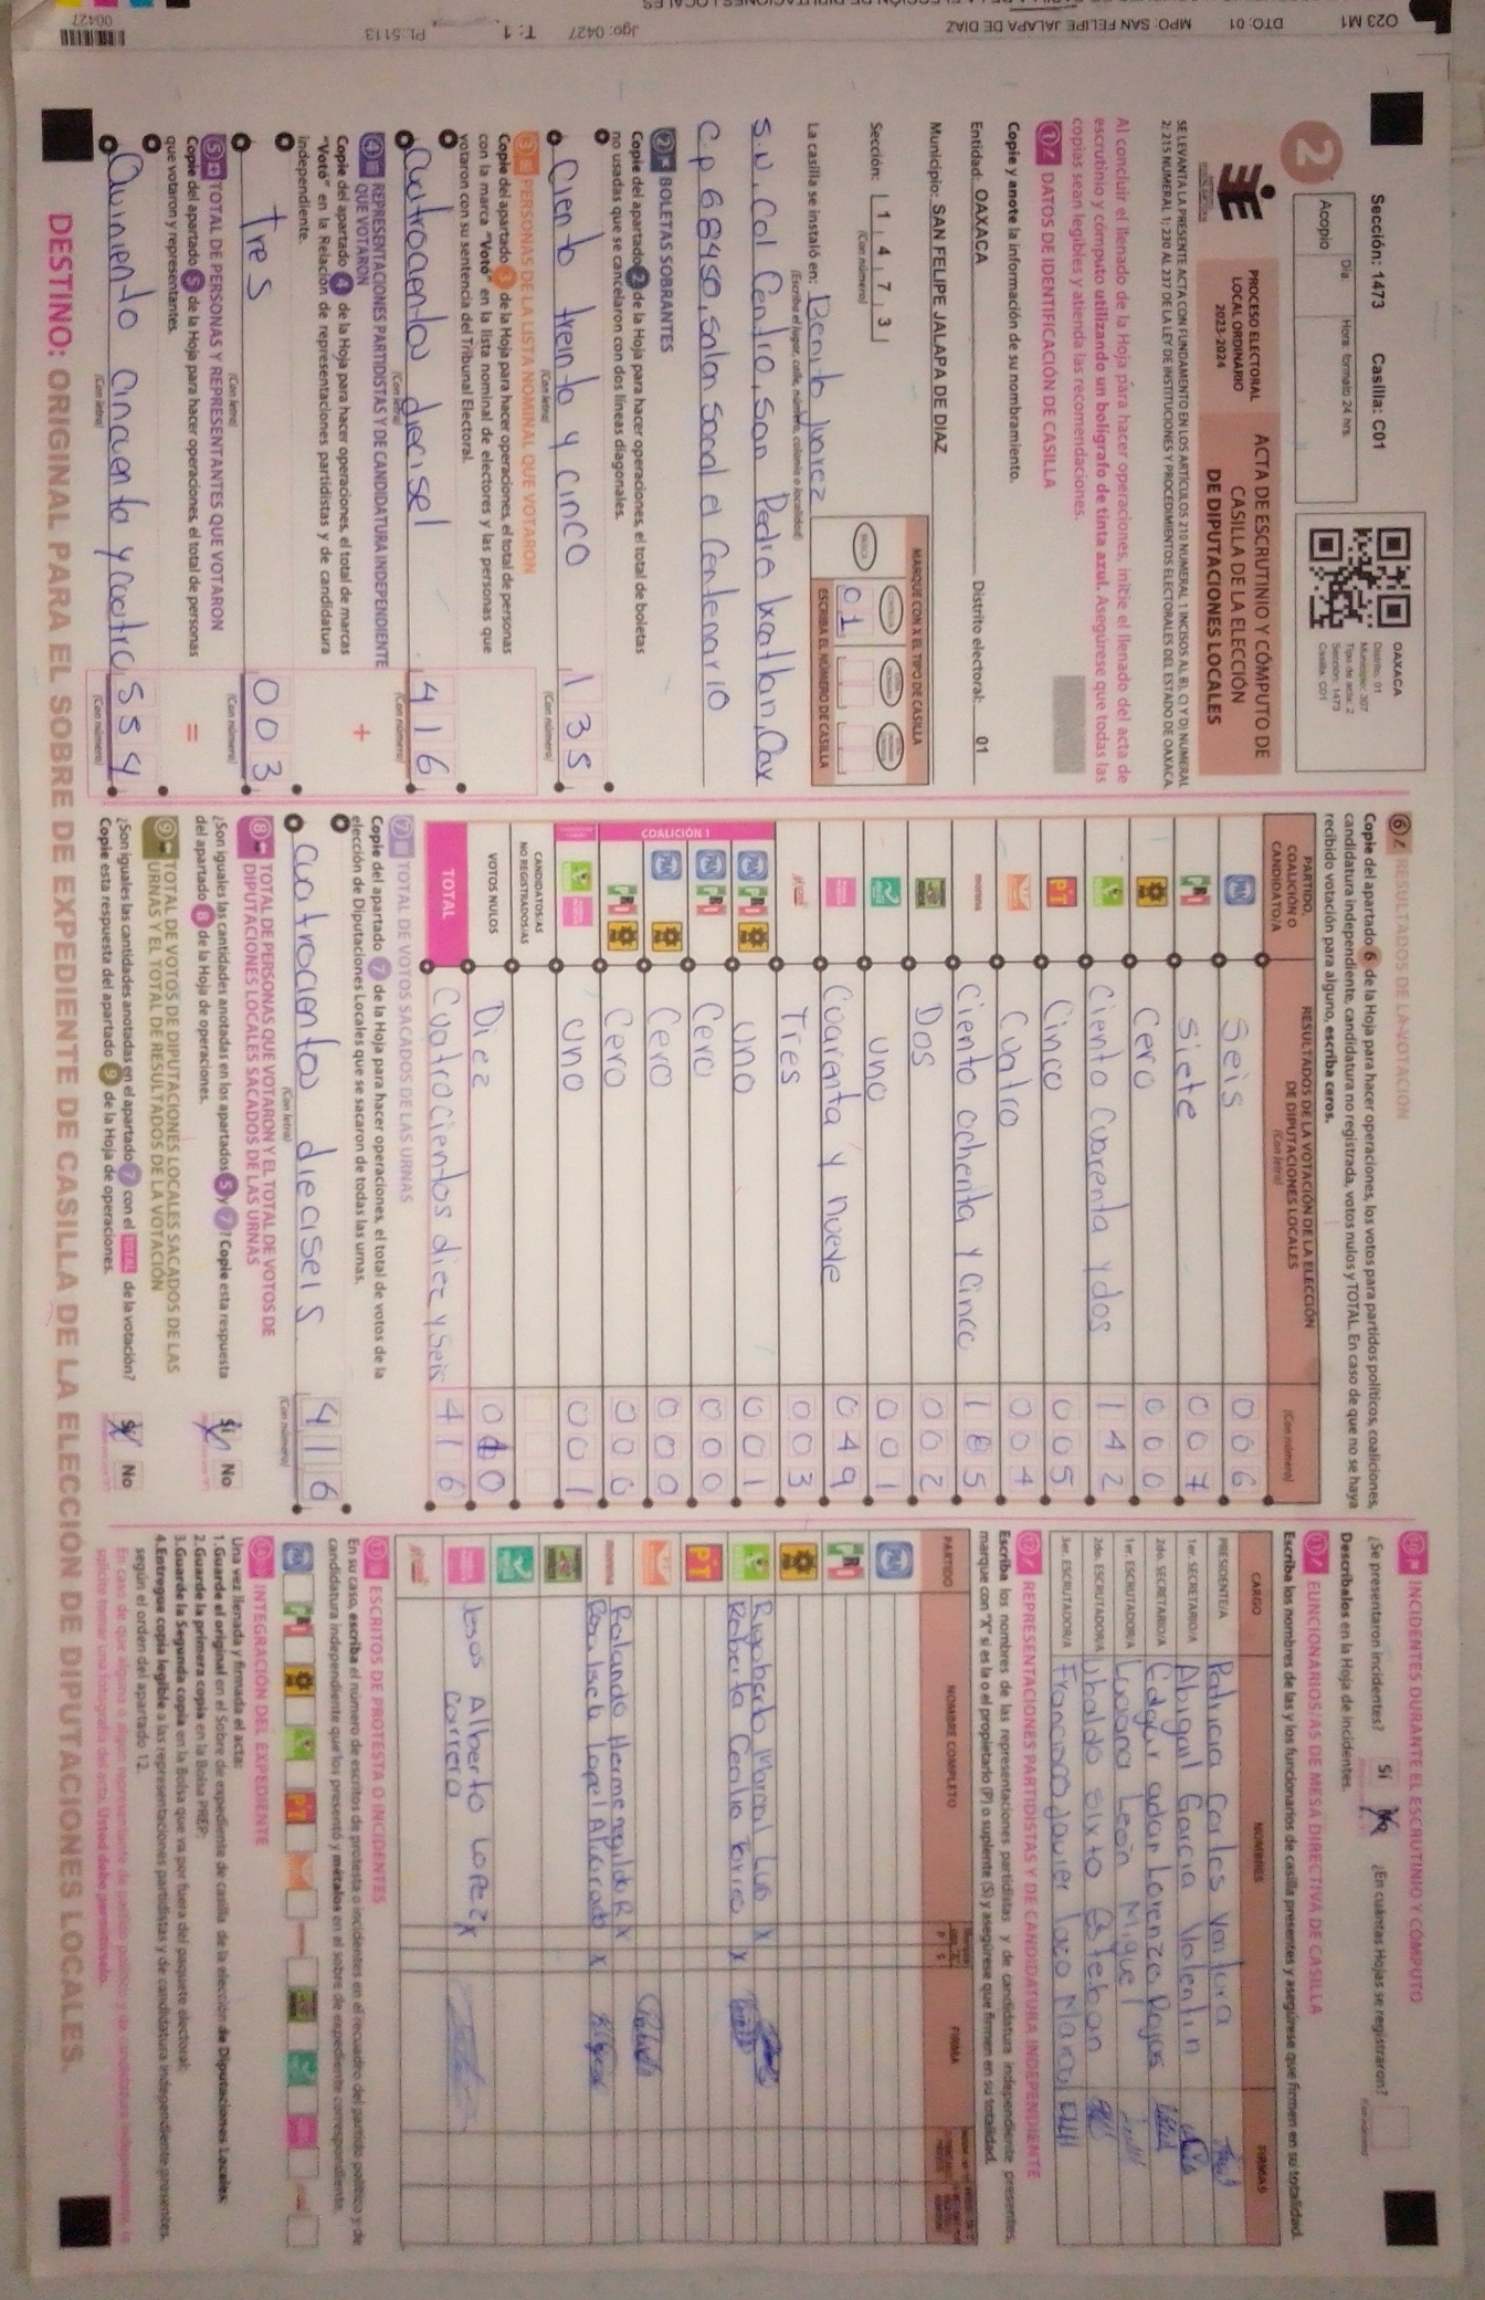 023 M1 DTO: 01 MPO: SAN FELIPE JALAPA DE DIAZ Jgo: 0427 T: 1 PL: 5113 00427
Sección: 1473 Casilla: C01
2
Acopio
Día Hora: formato 24 hrs.
OAXACA
Distrito: 01
Municipio: 307
Tipo de acta: 2
Sección: 1473
Casilla: C01
PROCESO ELECTORAL
LOCAL ORDINARIO
2023-2024
ACTA DE ESCRUTINIO Y CÓMPUTO DE
CASILLA DE LA ELECCIÓN
DE DIPUTACIONES LOCALES
SE LEVANTA LA PRESENTE ACTA CON FUNDAMENTO EN LOS ARTÍCULOS 210 NUMERAL 1 INCISOS A), B), C) Y D); NUMERAL
2; 215 NUMERAL 1; 230 AL 237 DE LA LEY DE INSTITUCIONES Y PROCEDIMIENTOS ELECTORALES DEL ESTADO DE OAXACA.
Al concluir el llenado de la Hoja para hacer operaciones, inicie el llenado del acta de
escrutinio y cómputo utilizando un bolígrafo de tinta azul. Asegúrese que todas las
copias sean legibles y atienda las recomendaciones.
1 DATOS DE IDENTIFICACIÓN DE CASILLA
Copie y anote la información de su nombramiento.
Entidad: OAXACA Distrito electoral: 01
Municipio: SAN FELIPE JALAPA DE DIAZ
Sección: 1 4 7 3
(Con número)
MARQUE CON X EL TIPO DE CASILLA
0 1
ESCRIBA EL NÚMERO DE CASILLA
La casilla se instaló en: Benito Juarez
(Escriba el lugar, calle, número, colonia o localidad)
S.N, Col Centro, San Pedro Ixcatlan, Oax
C.p 68450, Salon Social el Centenario
2 BOLETAS SOBRANTES
Copie del apartado 2 de la Hoja para hacer operaciones, el total de boletas
no usadas que se cancelaron con dos líneas diagonales.
Ciento treinta y cinco 135
(Con letra) (Con número)
3 PERSONAS DE LA LISTA NOMINAL QUE VOTARON
Copie del apartado 3 de la Hoja para hacer operaciones, el total de personas
con la marca "Votó" en la lista nominal de electores y las personas que
votaron con su sentencia del Tribunal Electoral.
416
(Con letra) (Con número)
4 REPRESENTACIONES PARTIDISTAS Y DE CANDIDATURA INDEPENDIENTE
QUE VOTARON
Copie del apartado 4 de la Hoja para hacer operaciones, el total de marcas
"Votó" en la Relación de representaciones partidistas y de candidatura
independiente.
+
tres 003
(Con letra) (Con número)
5 TOTAL DE PERSONAS Y REPRESENTANTES QUE VOTARON
Copie del apartado 5 de la Hoja para hacer operaciones, el total de personas
que votaron y representantes.
=
Quiniento cincuenta y cuatro 554
(Con letra) (Con número)
6 RESULTADOS DE LA VOTACIÓN
Copie del apartado 6 de la Hoja para hacer operaciones, los votos para partidos políticos, coaliciones,
candidatura independiente, candidatura no registrada, votos nulos y TOTAL. En caso de que no se haya
recibido votación para alguno, escriba ceros.
PARTIDO, COALICIÓN O CANDIDATO/A
RESULTADOS DE LA VOTACIÓN DE LA ELECCIÓN DE DIPUTACIONES LOCALES
(Con letra) (Con número)
PAN Seis 006
PRI siete 007
Cero 000
Ciento Cuarenta y dos 142
PT Cinco 005
Cuatro 004
morena Ciento ochenta y Cinco 185
Dos 002
uno 001
Cuarenta y nueve 049
Tres 003
COALICIÓN 1
PAN PRI uno 001
PAN PRI Cero 000
PAN Cero 000
PRI Cero 000
uno 001
CANDIDATOS/AS NO REGISTRADOS/AS
VOTOS NULOS Diez 010
TOTAL Cuatrocientos diez y seis 416
7 TOTAL DE VOTOS SACADOS DE LAS URNAS
Copie del apartado 7 de la Hoja para hacer operaciones, el total de votos de la
elección de Diputaciones Locales que se sacaron de todas las urnas.
cuatrocientos dieciseis 416
(Con letra) (Con número)
8 TOTAL DE PERSONAS QUE VOTARON Y EL TOTAL DE VOTOS DE
DIPUTACIONES LOCALES SACADOS DE LAS URNAS
¿Son iguales las cantidades anotadas en los apartados 5 y 7? Copie esta respuesta
del apartado 8 de la Hoja de operaciones.
Sí No
9 TOTAL DE VOTOS DE DIPUTACIONES LOCALES SACADOS DE LAS
URNAS Y EL TOTAL DE RESULTADOS DE LA VOTACIÓN
¿Son iguales las cantidades anotadas en el apartado 7 con el TOTAL de la votación?
Copie esta respuesta del apartado 9 de la Hoja de operaciones.
Sí No
10 INCIDENTES DURANTE EL ESCRUTINIO Y CÓMPUTO
¿Se presentaron incidentes? Sí No ¿En cuántas Hojas se registraron?
Descríbalos en la Hoja de incidentes.
11 FUNCIONARIOS/AS DE MESA DIRECTIVA DE CASILLA
Escriba los nombres de las y los funcionarios de casilla presentes y asegúrese que firmen en su totalidad.
CARGO NOMBRES FIRMAS
PRESIDENTE/A Patricia Carlos Ventura
1er. SECRETARIO/A Abigail Garcia Valentin
2do. SECRETARIO/A Edgar adan Lorenzo Reyes
1er. ESCRUTADOR/A Luciana León Miguel
2do. ESCRUTADOR/A Ubaldo Sixto Esteban
3er. ESCRUTADOR/A Francisco Javier
12 REPRESENTACIONES PARTIDISTAS Y DE CANDIDATURA INDEPENDIENTE
Escriba los nombres de las representaciones partidistas y de candidatura independiente presentes,
marque con "X" si es la o el propietario (P) o suplente (S) y asegúrese que firmen en su totalidad.
PARTIDO NOMBRE COMPLETO P S FIRMA
PAN
PRI
Rigoberto X
Roberta X
PT
morena Rolando Hermenegildo R X
X
Jesus Alberto Lopez X
Carrera
13 ESCRITOS DE PROTESTA O INCIDENTES
En su caso, escriba el número de escritos de protesta o incidentes en el recuadro del partido político y de
candidatura independiente que los presentó y métalos en el sobre de expediente correspondiente.
14 INTEGRACIÓN DEL EXPEDIENTE
Una vez llenada y firmada el acta:
1.Guarde el original en el Sobre de expediente de casilla de la elección de Diputaciones Locales.
2.Guarde la primera copia en la Bolsa PREP.
3.Guarde la Segunda copia en la Bolsa que va por fuera del paquete electoral.
4.Entregue copia legible a las representaciones partidistas y de candidatura independiente presentes,
según el orden del apartado 12.
DESTINO: ORIGINAL PARA EL SOBRE DE EXPEDIENTE DE CASILLA DE LA ELECCIÓN DE DIPUTACIONES LOCALES.